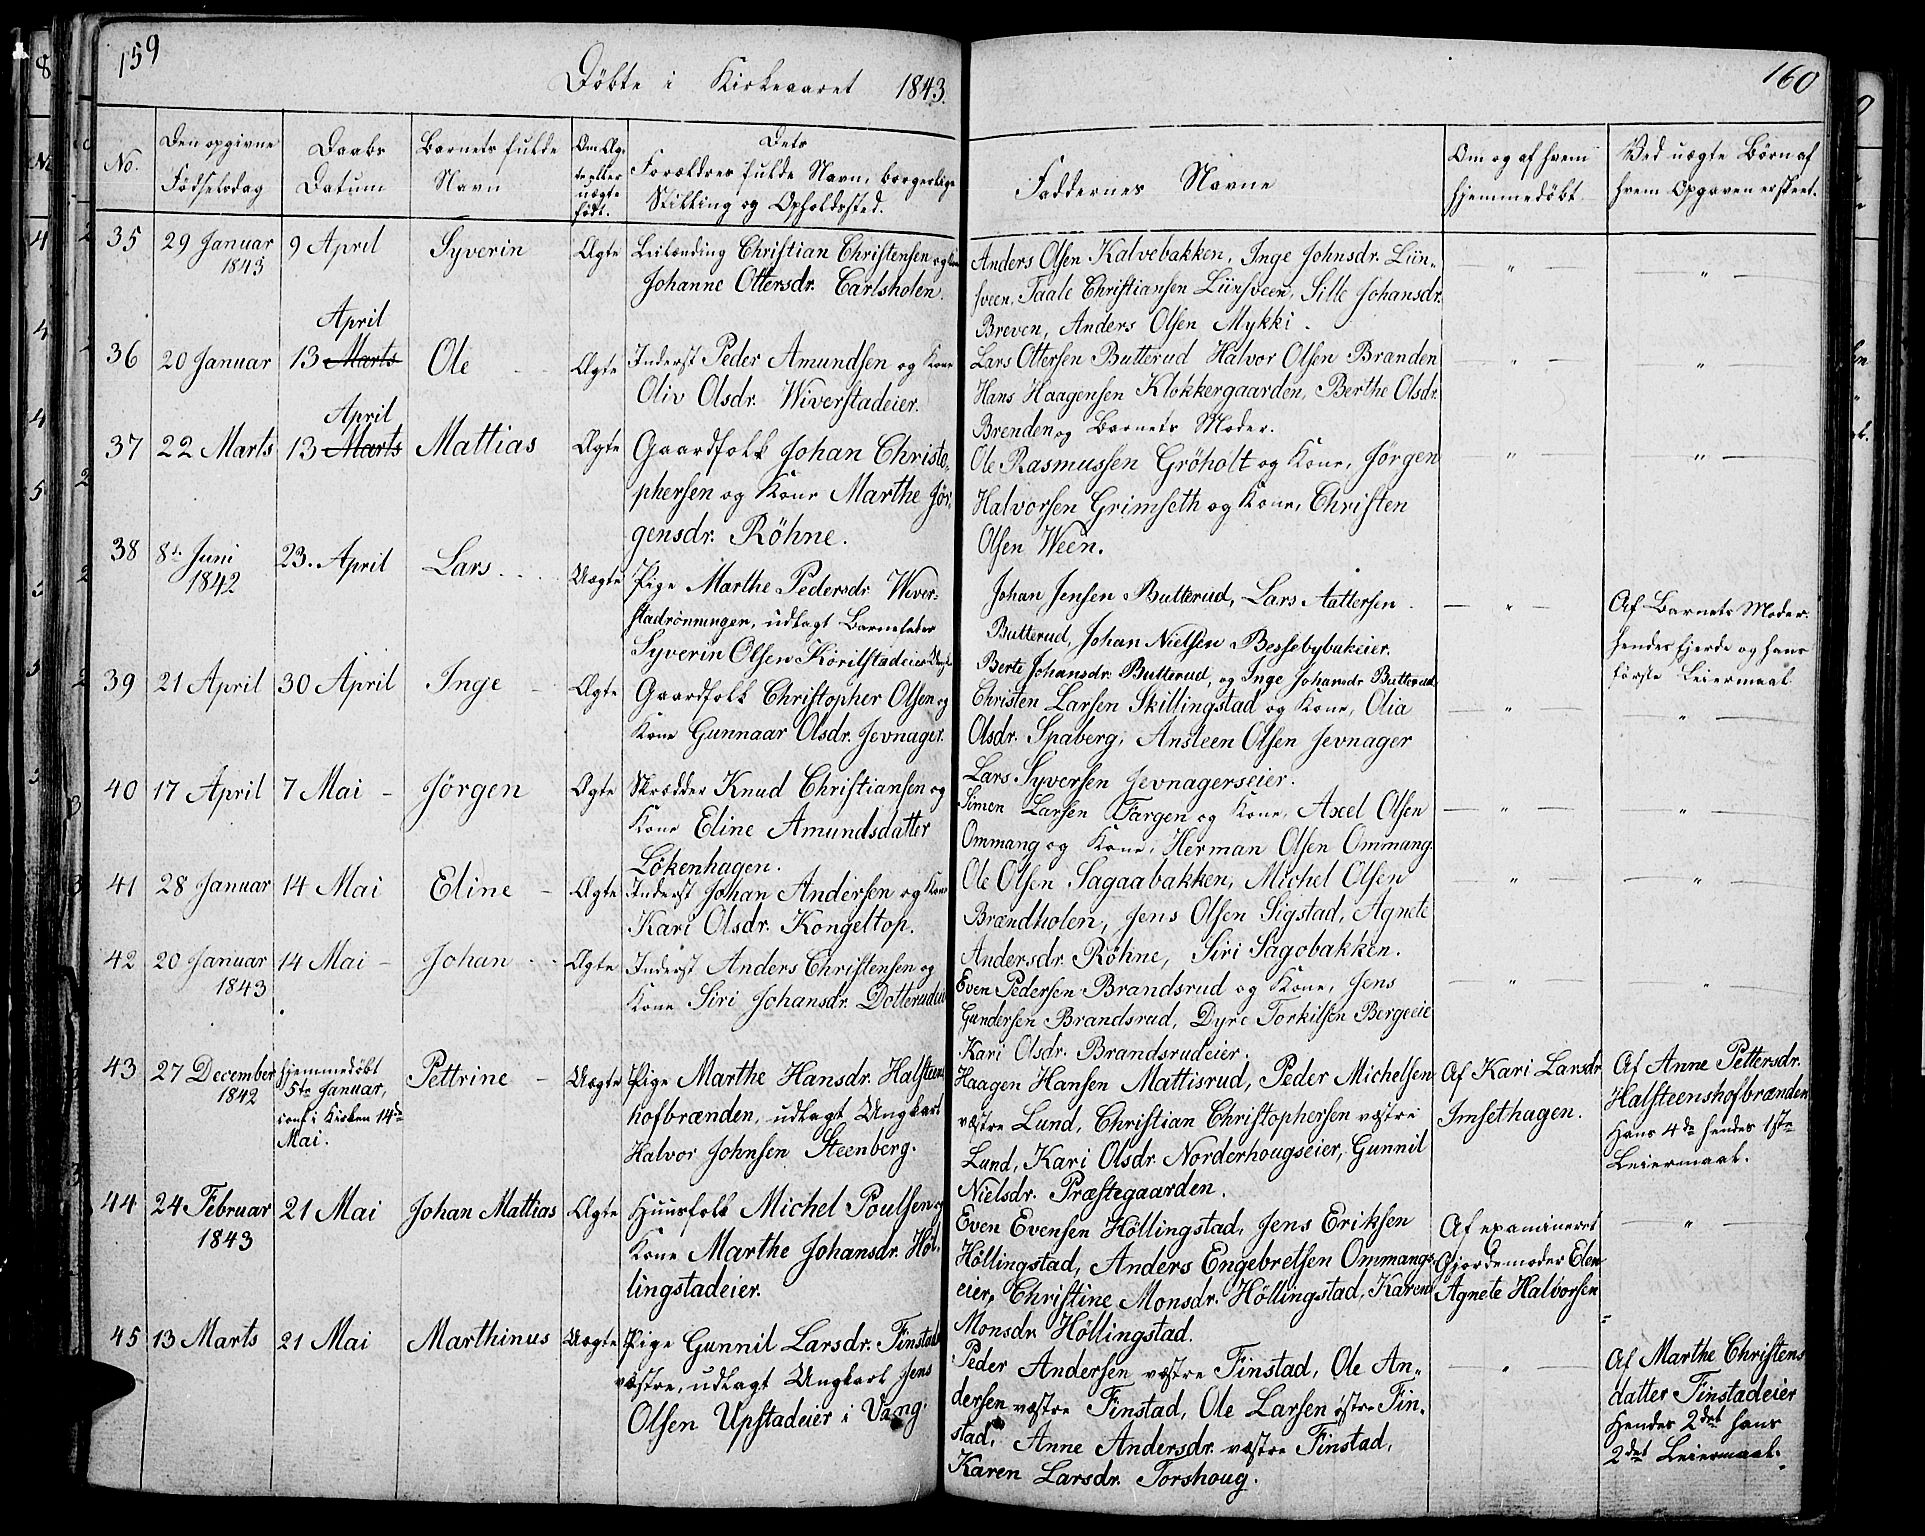 159
Döbte i Kirkeaaret 1843.
No.
Den opgivne Födselsdag
Daabs Datum
Barnets fulde Navn
Om Ægte eller uægte født.
Dets Forældres fulde Navn, borgerlige Stilling og Opholdssted.
35
29 Januar 1843
9 April
Syverin
Ægte
Leilending Christian Christensen og
Johanne Ottersdr. Carlsholen.
36
20 Januar
April
13 Marts
Ole
Ægte
Inderst Peder Amundsen og Kone
Oliv Olsdr. Wiverstadeier.
37
22 Marts
April
13 Marts
Mattias
Ægte
Gaardfolk Johan Christo-
phersen og Kone Marthe Jör-
gensdr. Röhne.
38
8de Juni 1842
23. April
Lars
Uægte
Pige Marthe Pedersdr. Wiver-
stadrönningen, udlagt Barnefader
Syverin Olsen Korilstadeier
39
21 April
30 April
Inge
Ægte
Gaardfolk Christopher Olsen og
Kone Gunnaar Olsdr. Jevnager.
40
17 April
7 Mai
Jörgen
Ægte
Skrædder Knud Christiansen og
Kone Eline Amundsdatter
Lökenhagen.
41
28 Januar
14 Mai
Eline
Ægte
Inderst Johan Andersen og Kone
Kari Olsdr. Kongeltop.
42
20 Januar 1843
14 Mai
Johan
Ægte
Inderst Anders Christensen og
Kone Siri Johansdr. Dotterudeie
43
27 December 1842
hjemmedöbt
5te Januar,
conf i Kirken 14de
Mai.
Pettrine
Uægte
Pige Marthe Hansdr. Halsteens
hofbrænden, udlagt Ungkarl
Halvor Johnsen Steenberg.
44
24 Februar 1843
21 Mai
Johan Mattias
Ægte
Huusfolk Michel Poulsen og
Kone Marthe Johansdr. Höl-
lingstadeier.
45
13 Marts
21 Mai
Marthinus
Uægte
Pige Gunnil Larsdr. Finstad
væstre, udlagt Ungkarl Jens
Olsen Upstadeier i Vang.
160
Faddernes Navne
Om og af hvem hjemmedöbt.
Ved uægte Börn af hvem Opgaven er skeet.
Anders Olsen Kalvebakken, Inge Johnsdr. Lün-
sveen, Taale Christiansen Lünsveen, Sille Johansdr.
Breven, Anders Olsen Mykki.
Lars Ottersen Butterud Halvor Olsen Branden
Hans Haagensen Klokkergaarden, Berthe Olsdr.
Brenden og Barnets Moder.
Ole Rasmussen Gröholt og Kone, Jörgen
Halvorsen Grimseth og Kone, Christen
Olsen Ween.
Johan Jensen Butterud, Lars Aattersen
Butterud, Johan Nielsen Bessebybakeier.
Berte Johansdr. Butterud, og Inge Johansdr Butterud
Af Barnets Moder.
hendes fjerde og hans
første Leiermaal
Christen Larsen Skillingstad og Kone, Olia
Olsdr. Spaberg, Ansteen Olsen Jevnager
Lars Syversen Jevnagerseier.
Simen Larsen Fargen og Kone, Axel Olsen
Ommang og Kone, Herman Olsen Ommang.
Ole Olsen Sagaabakken, Michel Olsen
Brændholen, Jens Olsen Sigstad, Agnete
Andersdr. Röhne, Siri Sagobakken.
Even Pedersen Brandsrud og Kone, Jens
Gundersen Brandsrud, Dyre Torkilsen Bergeeie
Kari Olsdr. Brandsrudeier.
Haagen Hansen Mattisrud, Peder Michelsen
væstre Lund, Christian Christophersen væstre
Lund, Kari Olsdr. Norderhougseier, Gunnil
Nielsdr. Præstegaarden.
Af Kari Larsdr
Imsethagen.
Af Anne Pettersdr.
Halsteenshofbrænden
Hans 4de hendes 1ste
Leiermaal.
Even Evensen Höllingstad, Jens Eriksen
Höllingstad, Anders Engebretsen Ommangs-
eier, Christine Monsdr. Höllingstad, Karen
Monsdr Höllingstad.
Af examineret
Gjordemoder Elen
Agnete Halvorsen
Peder Andersen væstre Finstad, Ole An-
dersen væstre Finstad, Ole Larsen østre Fin-
stad, Anne Andersdr. væstre Finstad,
Karen Larsdr. Torshoug.
Af Marthe Christens
datter Finstadeier
Hendes 2det hans
2det Leiermaal.